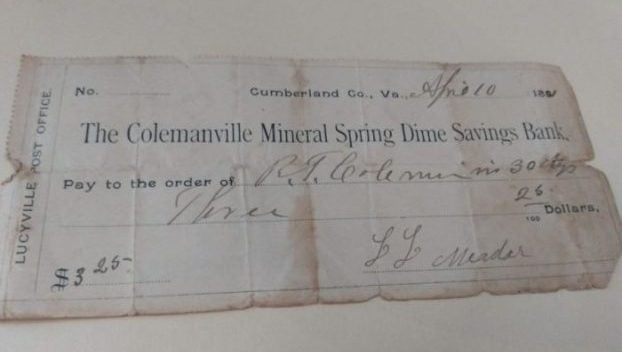 LUCYVILLE POST OFFICE.
No. Cumberland Co., Va., April 10 1891
The Colemanville Mineral Spring Dime Savings Bank.
Pay to the order of R. T. Coleman in 30 days
Three 25/100 Dollars.
$3 25 L L Meador